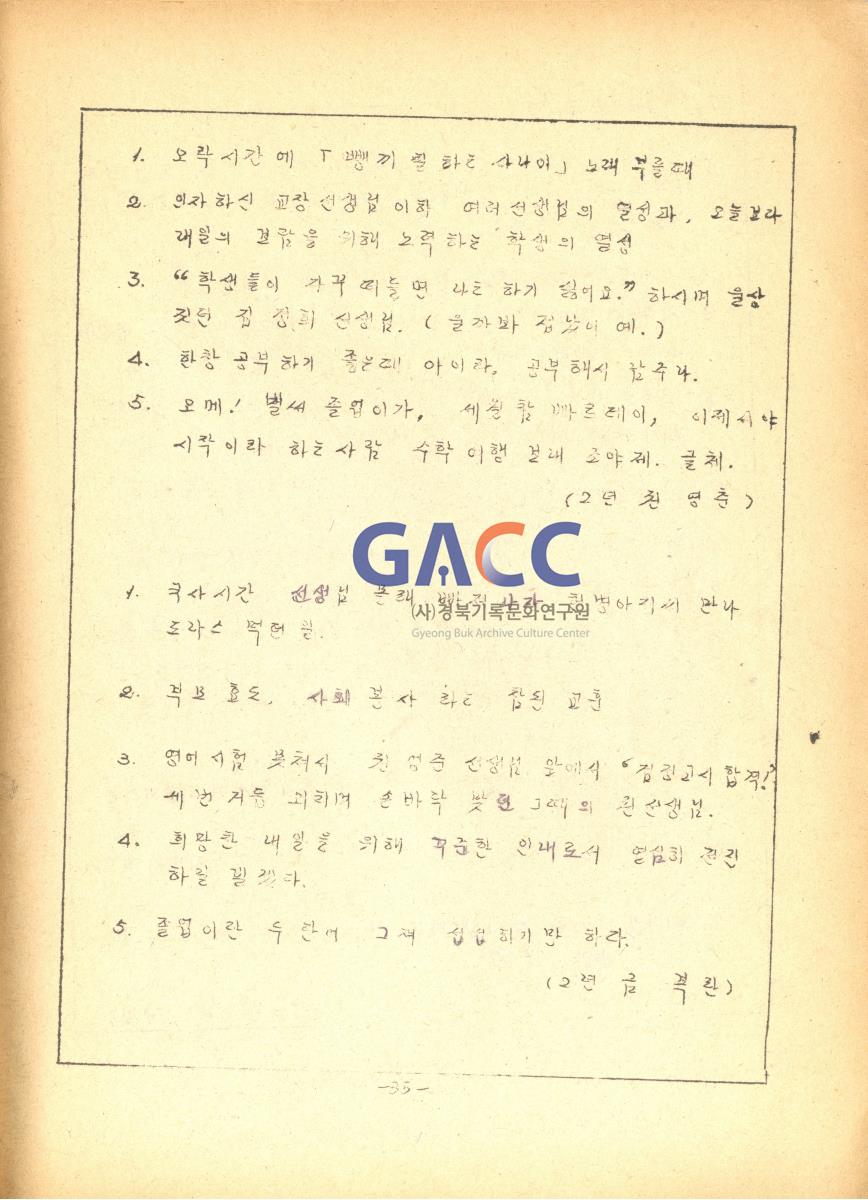 1. 오락시간에 「뺑끼 칠 하는 사나이」 노래 부를때
2. 인자하신 교장선생님 이하 여러선생님의 열성과, 오늘보다
내일의 결람을 위해 노력하는 학생의 열성
3. “학생들이 자꾸 떠들면 나는 하기 싫어요.” 하시며 울상
짓던 김 정희 선생님. (울까봐 겁났어 예.)
4. 한창 공부하기 좋은데 아이라, 공부해서 남주나.
5. 오메! 벌써 졸업이가, 세월 참 빠르데이, 이제서야
시작이라 하는사람 수학여행 보내 조야제. 글체.
(2년 권 영춘)
GACC
(사)경북기록문화연구원
Gyeong Buk Archive Culture Center
1. 국사시간 선생님 몰래 빠져나가 만나
도라스 먹던 일.
2. 부모효도, 사회봉사 라는 참된 교훈
3. 영어시험 못쳐서 권 영준 선생님 앞에서 “검정고시 합격!”
세번 거듭 외치며 손바닥 맞던 그때의 권선생님.
4. 희망찬 내일을 위해 꾸준한 인내로서 열심히 전진
하릴 빌겠다.
5. 졸업이란 두 단어 그저 섭섭하기만 하다.
(2년 금 란)
-35-